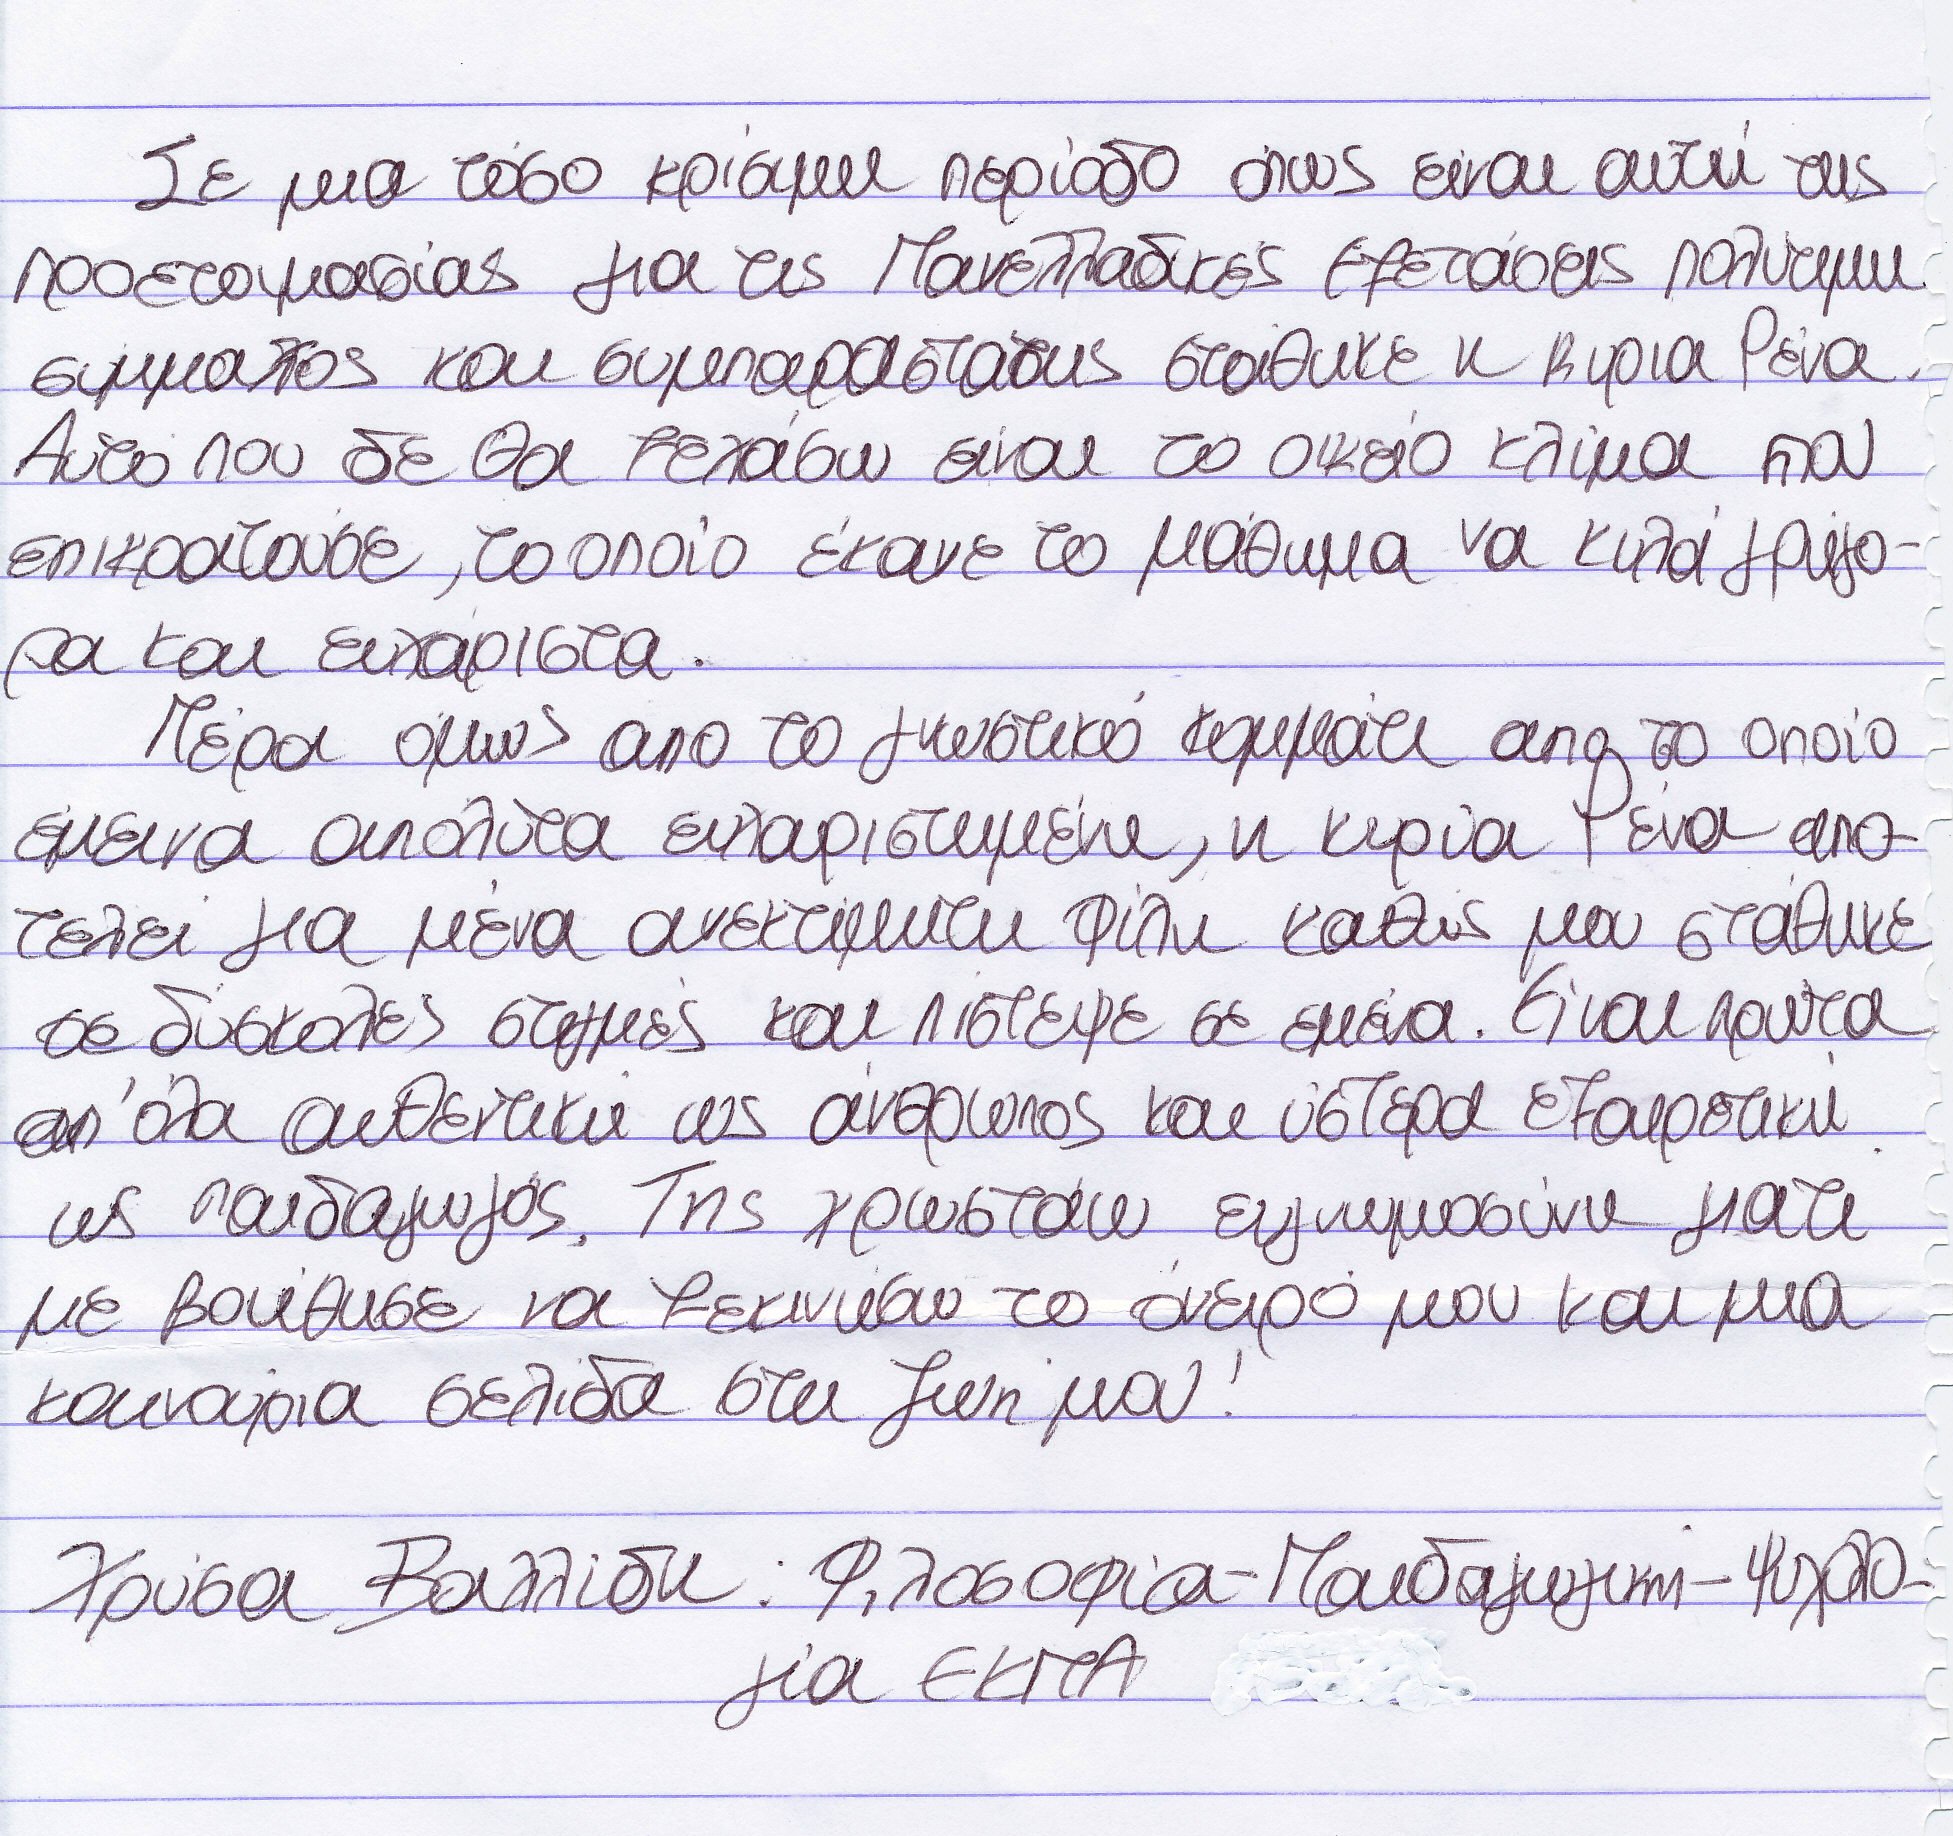 Σε μια τόσο κρίσιμη περίοδο όπως είναι αυτή της
προετοιμασίας για τις Πανελλαδικές Εξετάσεις πολύτιμη
σύμμαχος και συμπαραστάτης στάθηκε η κυρία Ρένα.
Αυτό που δε θα ξεχάσω είναι το οικείο κλίμα που
επικρατούσε, το οποίο έκανε το μάθημα να κυλά γρήγο-
ρα και ευχάριστα.
Πέρα όμως απο το γνωστικό κομμάτι απο το οποίο
έμεινα απόλυτα ευχαριστημένη, η κυρία Ρένα απο-
τελεί για μένα ανεκτίμητη φίλη καθώς μου στάθηκε
σε δύσκολες στιγμές και πίστεψε σε εμένα. Είναι πρώτα
απ' όλα αυθεντική ως άνθρωπος και ύστερα εξαιρετική
ως παιδαγωγός. Της χρωστάω ευγνωμοσύνη γιατι
με βοήθησε να ξεκινήσω το όνειρό μου και μια
καινούρια σελίδα στη ζωή μου!
Χρύσα Βαλλίδη : Φιλοσοφία-Παιδαγωγική-Ψυχολο-
γία ΕΚΠΑ